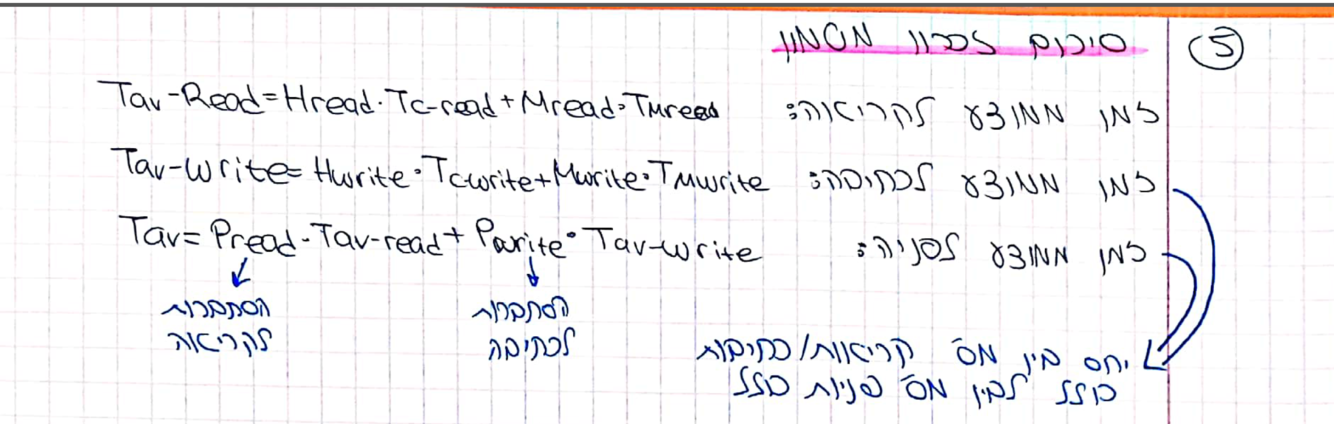 ⑤ סיכום זכרון מטמון
זמן ממוצע לקריאה: Tav-Read=Hread·Tc-read+Mread·TMread
זמן ממוצע לכתיבה: Tav-write=Hwrite·Tcwrite+Mwrite·TMwrite
זמן ממוצע לפניה: Tav=Pread·Tav-read+Pwrite·Tav-write
הסתברות
לקריאה
הסתברות
לכתיבה
יחס בין מס' קריאות/כתיבות
כולל לבין מס' פניות כולל